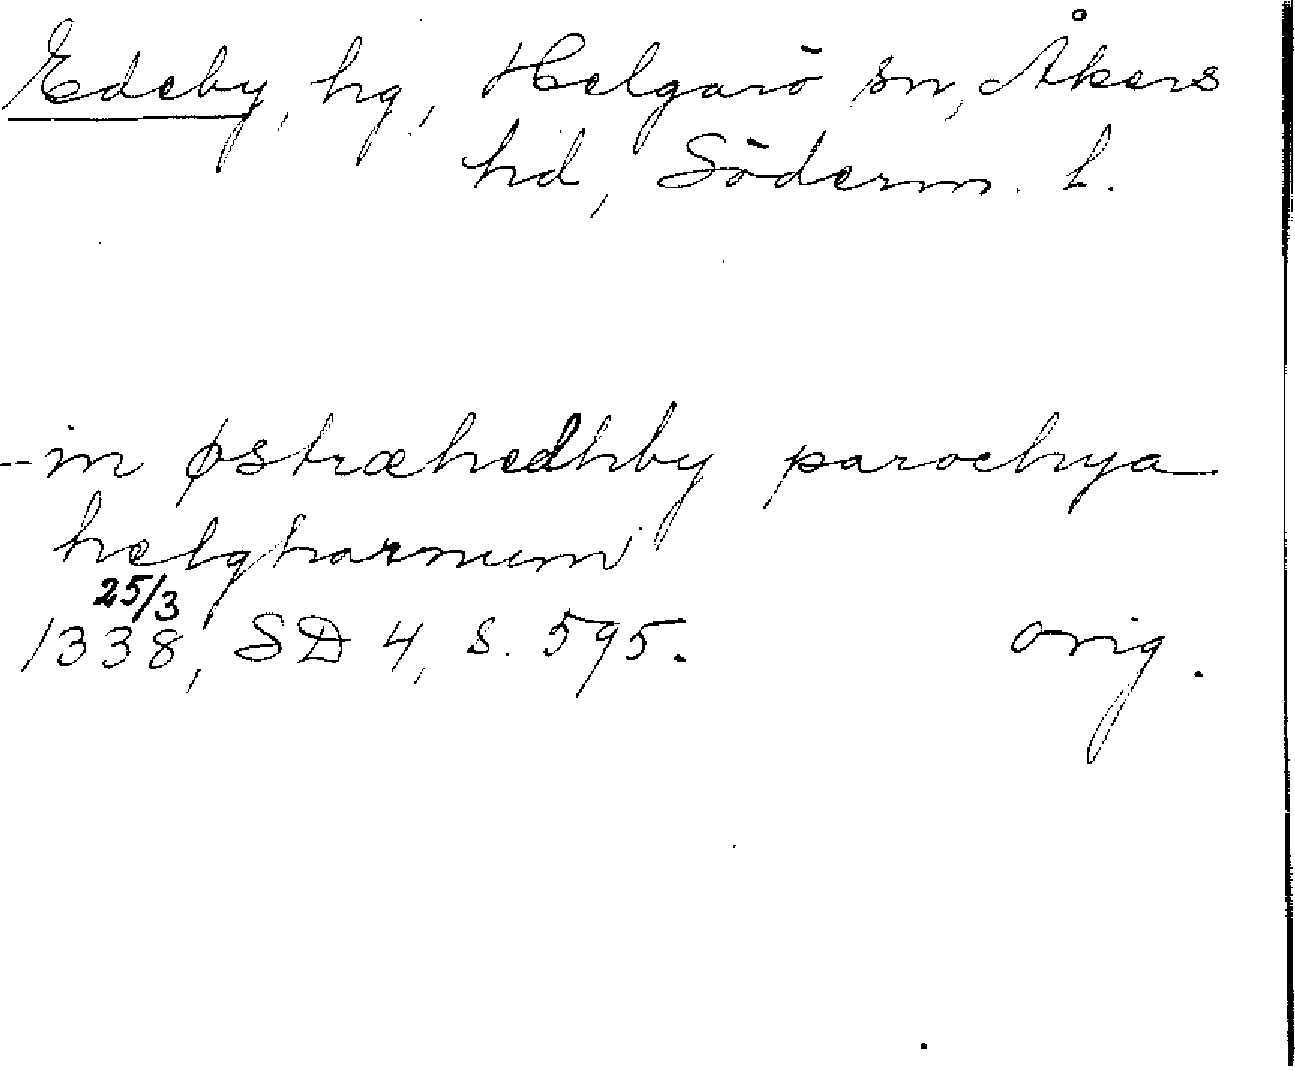 Edeby, hg, Helgarö sn, Åkers
hd, Söderm. l.
--in østræhedhby parochya
helgharnum
25/3
1338, SD 4, s. 595. orig.